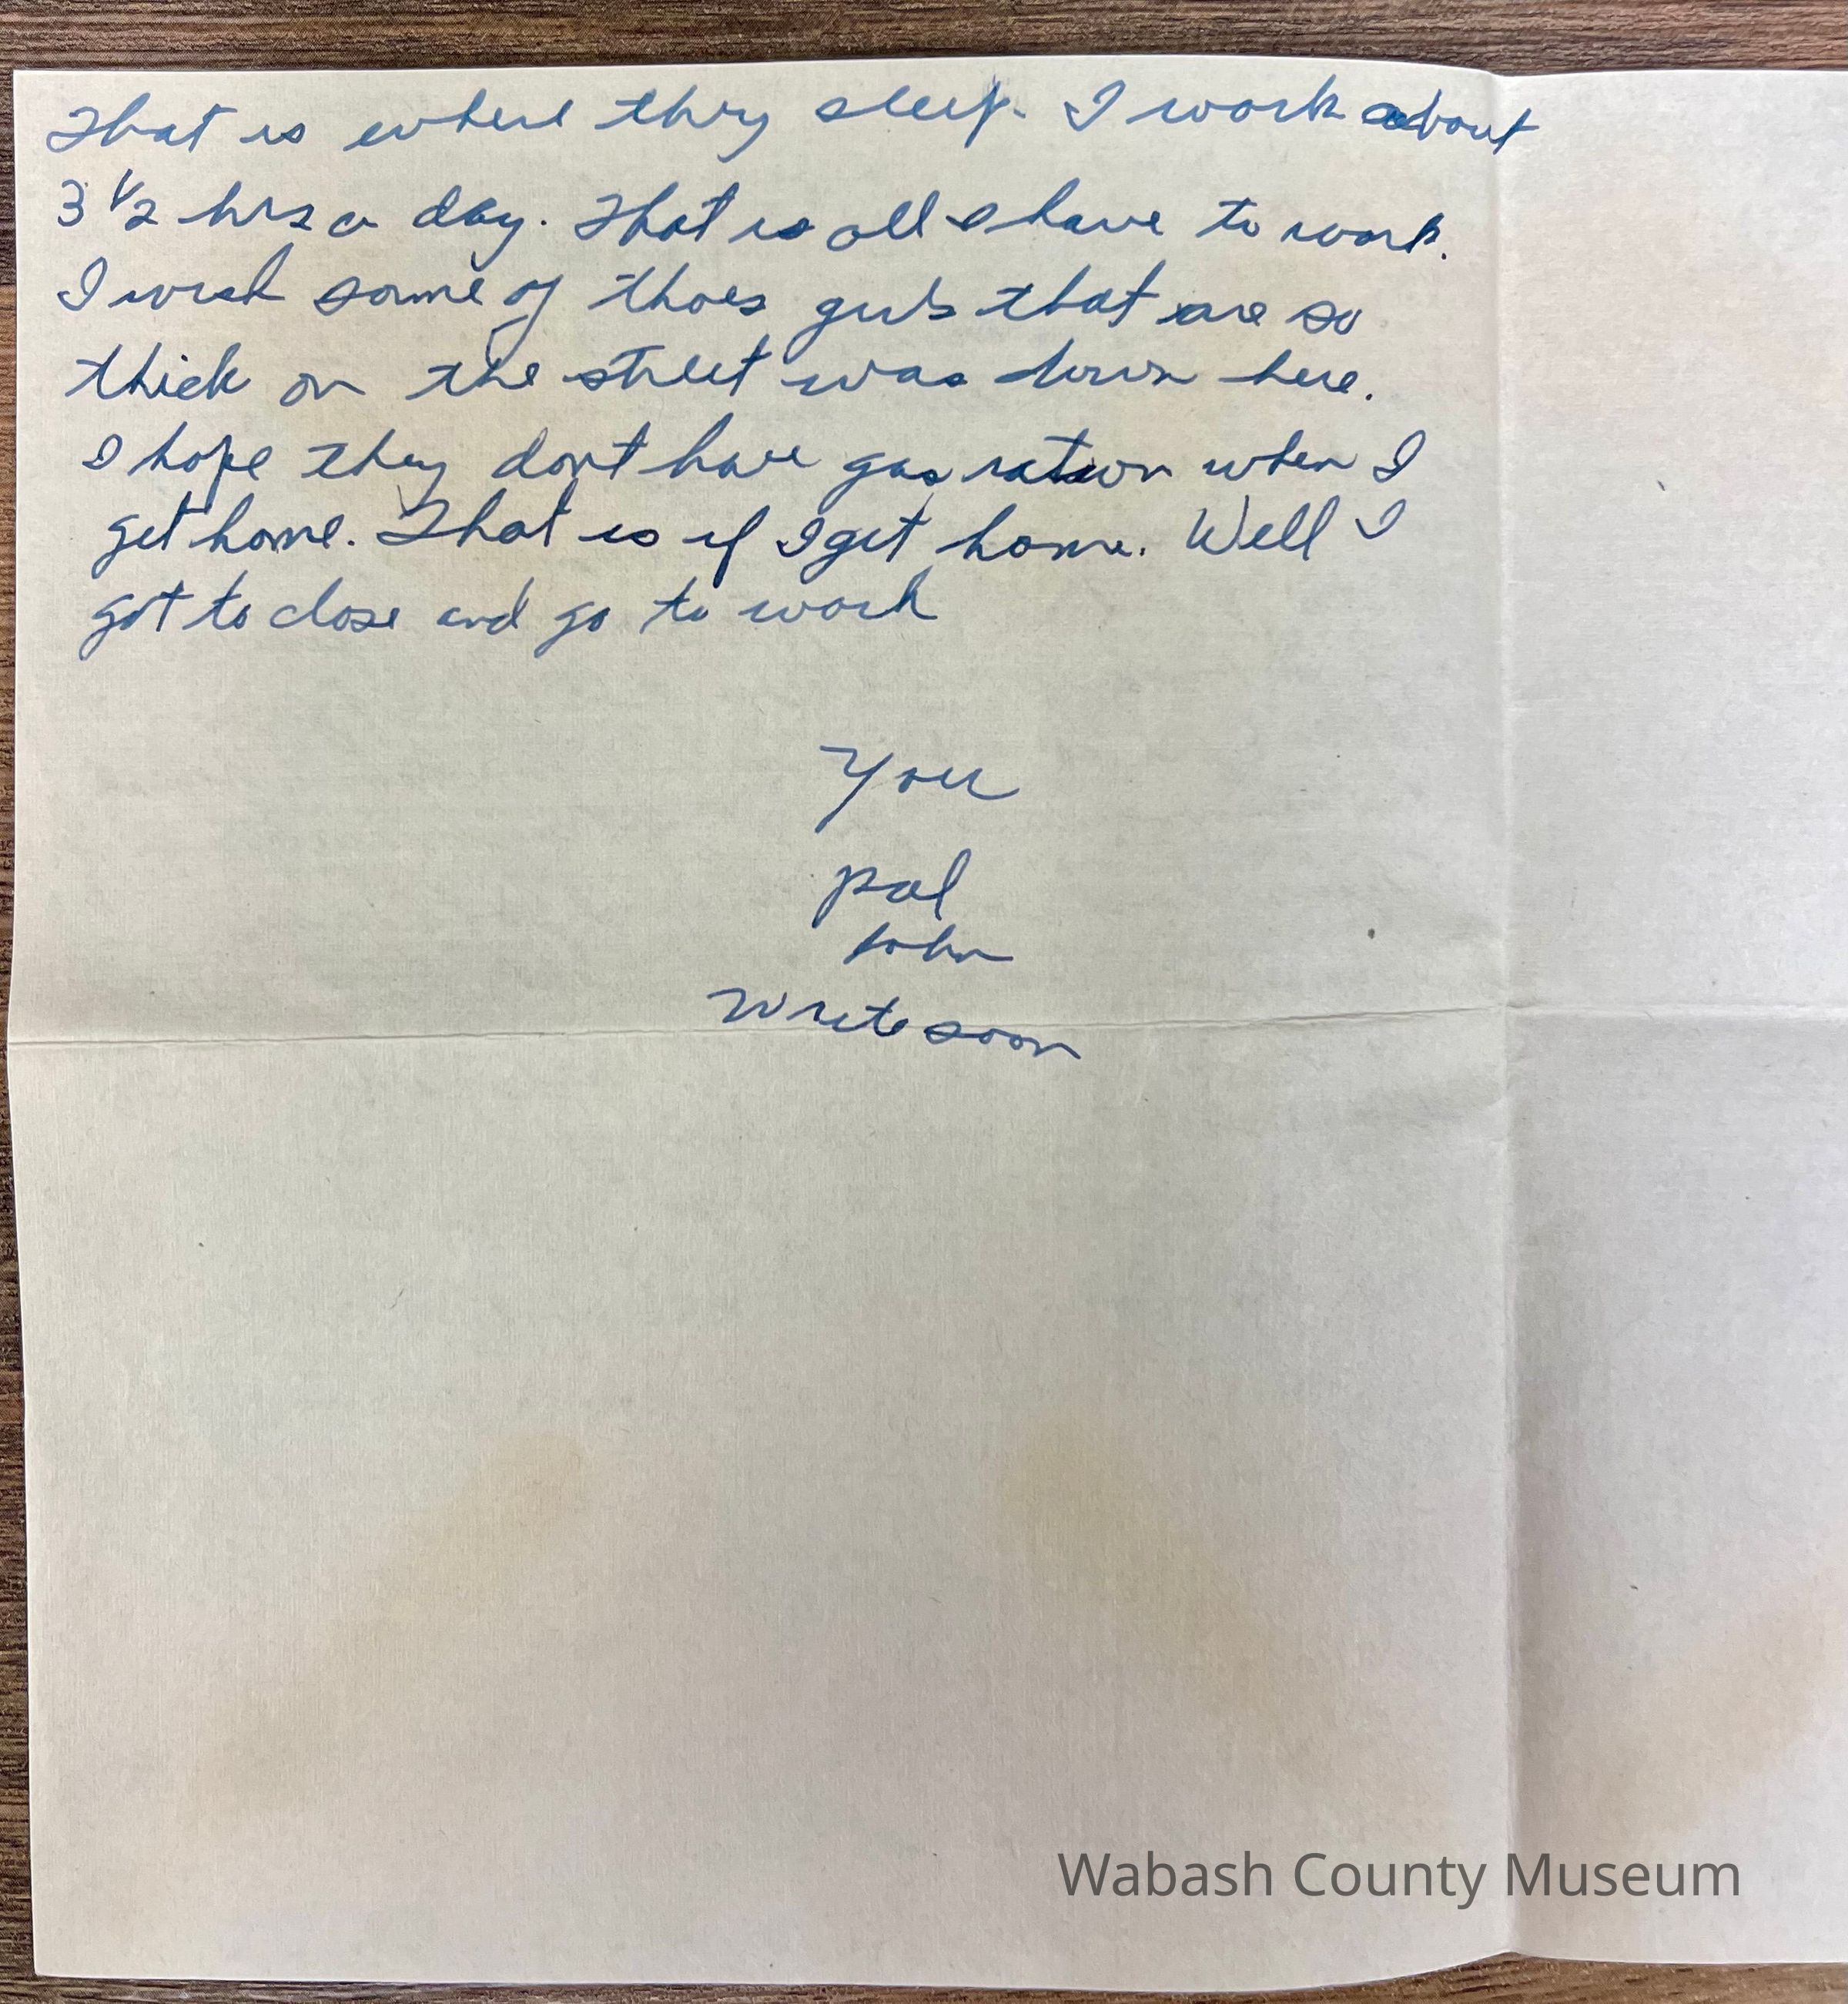 That is where they sleep. I work about
3 1/2 hrs a day. That is all I have to work.
I wish some of thoes girls that are so
thick on the street was down here.
I hope they dont have gas ration when I
get home. That is if I get home. Well I
got to close and go to work
You
pal
John
Write soon
Wabash County Museum